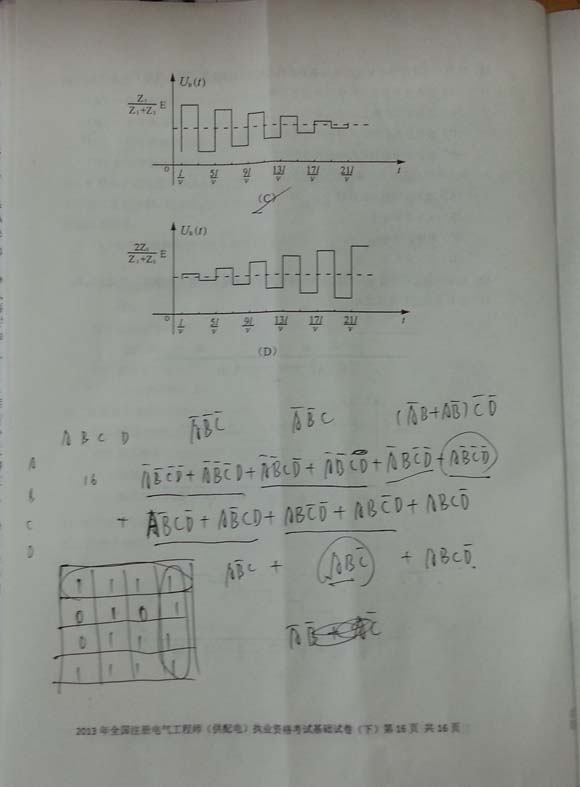 U_b(t)
Z_2/(Z_1+Z_2) E
0 l/v 5l/v 9l/v 13l/v 17l/v 21l/v t
(C)
U_b(t)
E
0 l/v 5l/v 9l/v 13l/v 17l/v 21l/v t
(D)
A B C D A̅B̅C̅ A̅B̅C (A̅B+AB̅)C̅D̅
A
B
C
D
16 A̅B̅C̅D̅ + A̅B̅C̅D + A̅B̅CD̅ + A̅B̅CD + A̅BC̅D̅ + AB̅C̅D̅
+ AB̅CD̅ + AB̅CD + ABC̅D̅ + ABC̅D + ABCD̅
AB̅C + ABC̅ + ABCD̅
1 1 1 1
0 1 0 1
0 1 1 1
1 1 1 1
A̅B̅
2013 年全国注册电气工程师（供配电）执业资格考试基础试卷（下）第 16 页 共 16 页